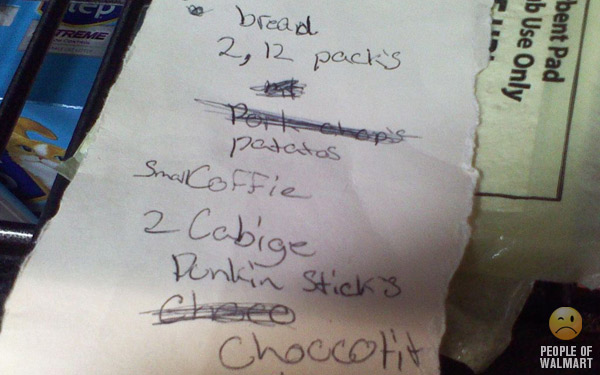 bread
2, 12 pack's
Pork chop's
patatos
Small Coffie
2 Cabige
Punkin Stick's
Choco
Choccolit
tep
XTREME
bent Pad
b Use Only
PEOPLE OF
WALMART